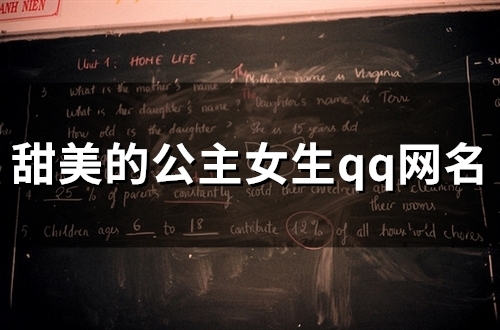 ANH NIEN
Unit 1: HOME LIFE
3 What is the mother's name? The Mother's name is Virginia
What is her daughter's name? Daughter's name is Terri
How old is the daughter? She is 15 years old
甜美的公主女生qq网名
4 25 % of parents constantly scold their children at cleaning
their rooms
5 Children ages 6 to 18 contribute 12% of all household chores